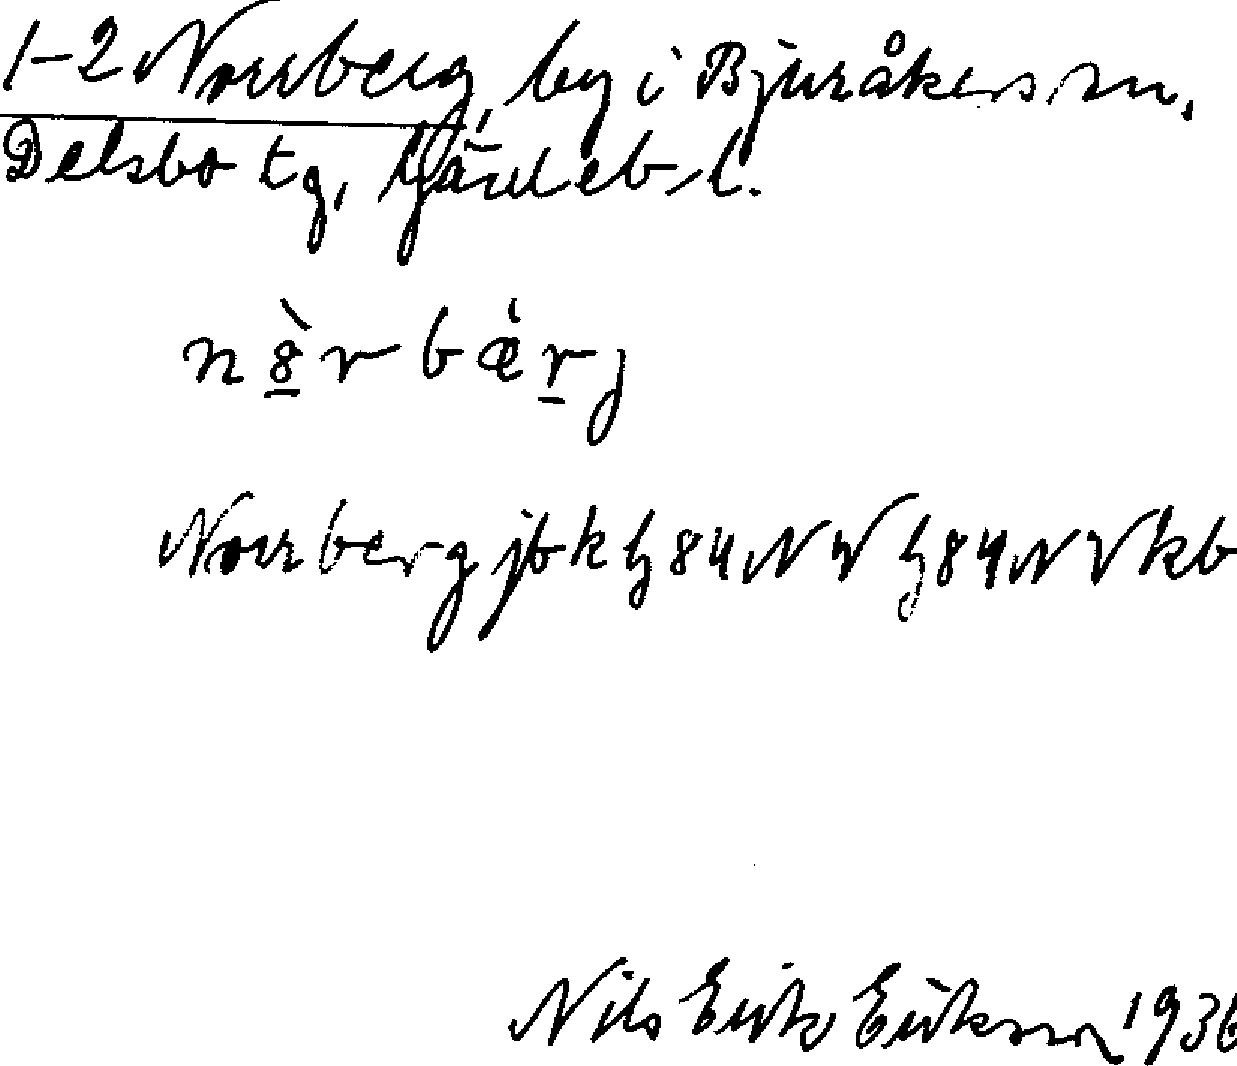 1-2 Norrberg, by i Bjuråkers sn.
Delsbo tg, Gävleb. l.
n8̲̀rbæ̀r̲j
Norrberg jbk h 84 NV h 84 NV kb
Nils Erik Erikson 1936